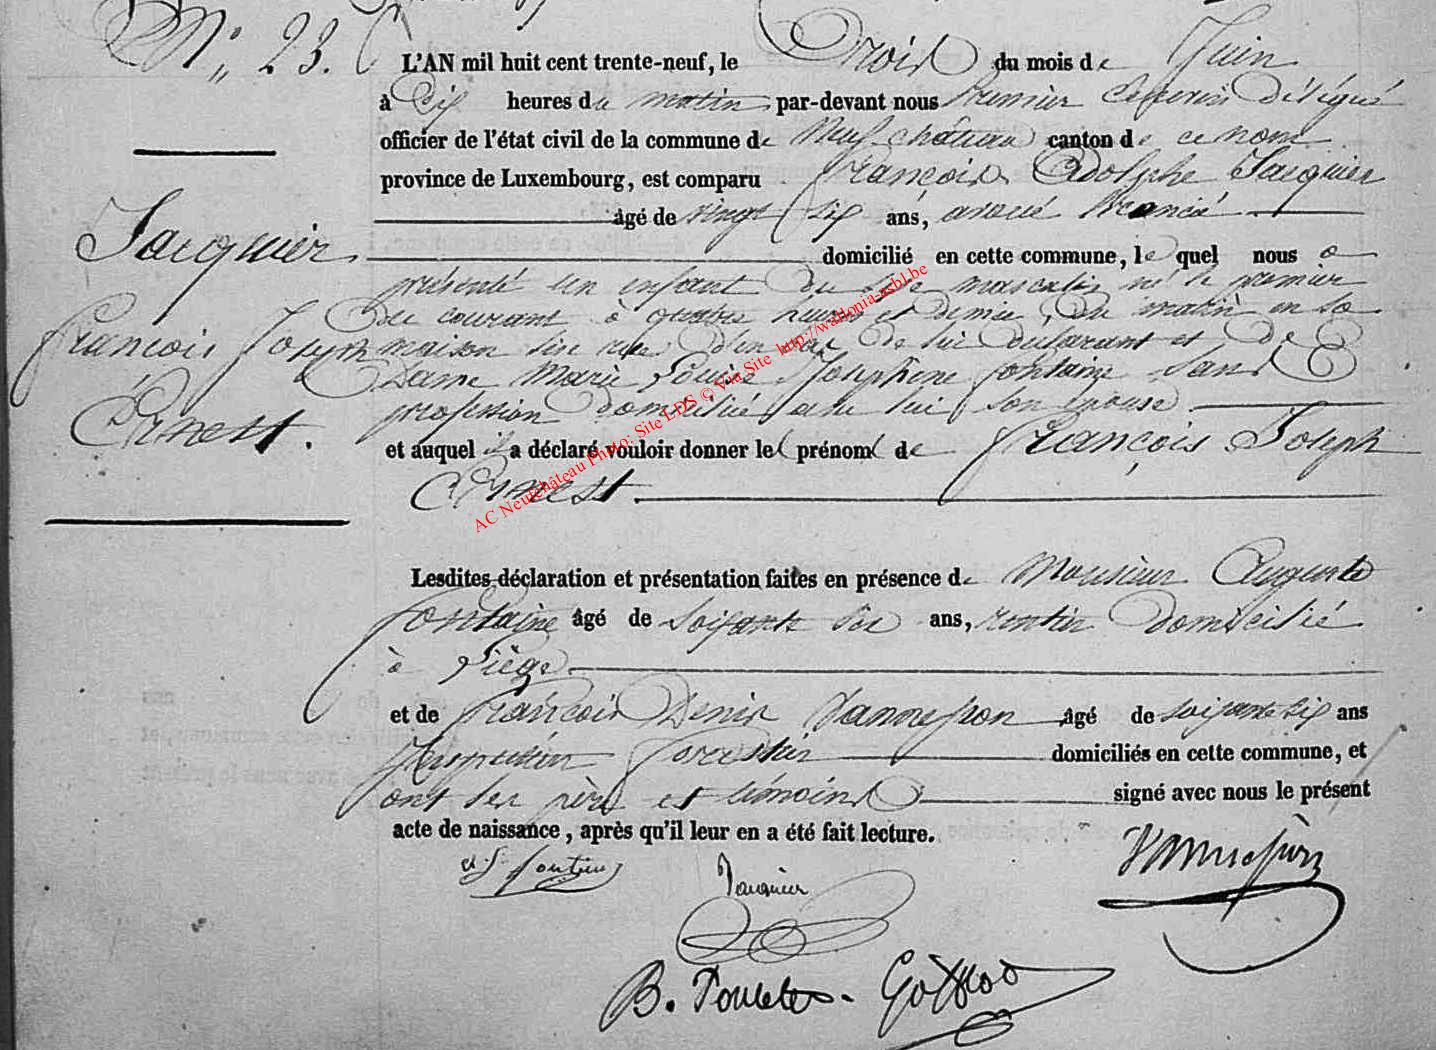 N° 23.
L'AN mil huit cent trente-neuf, le Trois du mois de Juin
à dix heures du matin par-devant nous Premier Echevin Délégué
officier de l'état civil de la commune de Neufchâteau canton de ce nom
province de Luxembourg, est comparu François Adolphe Jacquier
âgé de vingt six ans, avoué licencié
Jacquier
domicilié en cette commune, lequel nous a
présenté un enfant du sexe masculin né le premier
du courant à quatre heures et demie, du matin en sa
François Joseph
maison de lui déclarant et de
Dame Marie Louise Joséphine Fontaine sans
profession domiciliée avec lui son épouse
Ernest.
et auquel il a déclaré vouloir donner le prénom de François Joseph
Ernest
Lesdites déclaration et présentation faites en présence de Monsieur Auguste
Fontaine âgé de soixante ans, rentier domicilié
à Liège
et de François Denis âgé de soixante six ans
Inspecteur forestier domiciliés en cette commune, et
ont les père et témoins signé avec nous le présent
acte de naissance, après qu'il leur en a été fait lecture.
Jacquier
AC Neufchâteau Photo: Site LDS © Via Site http://wallonia-asbl.be